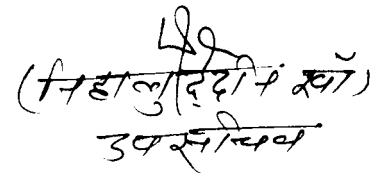 (निहालुद्दीन खाँ)
उप सचिव